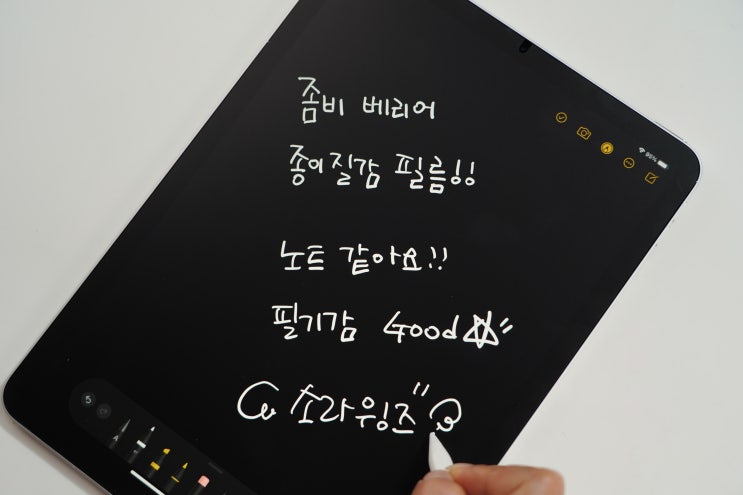 좀비 베리어
종이질감 필름!!
노트 같아요!!
필기감 Good
소라윙즈"